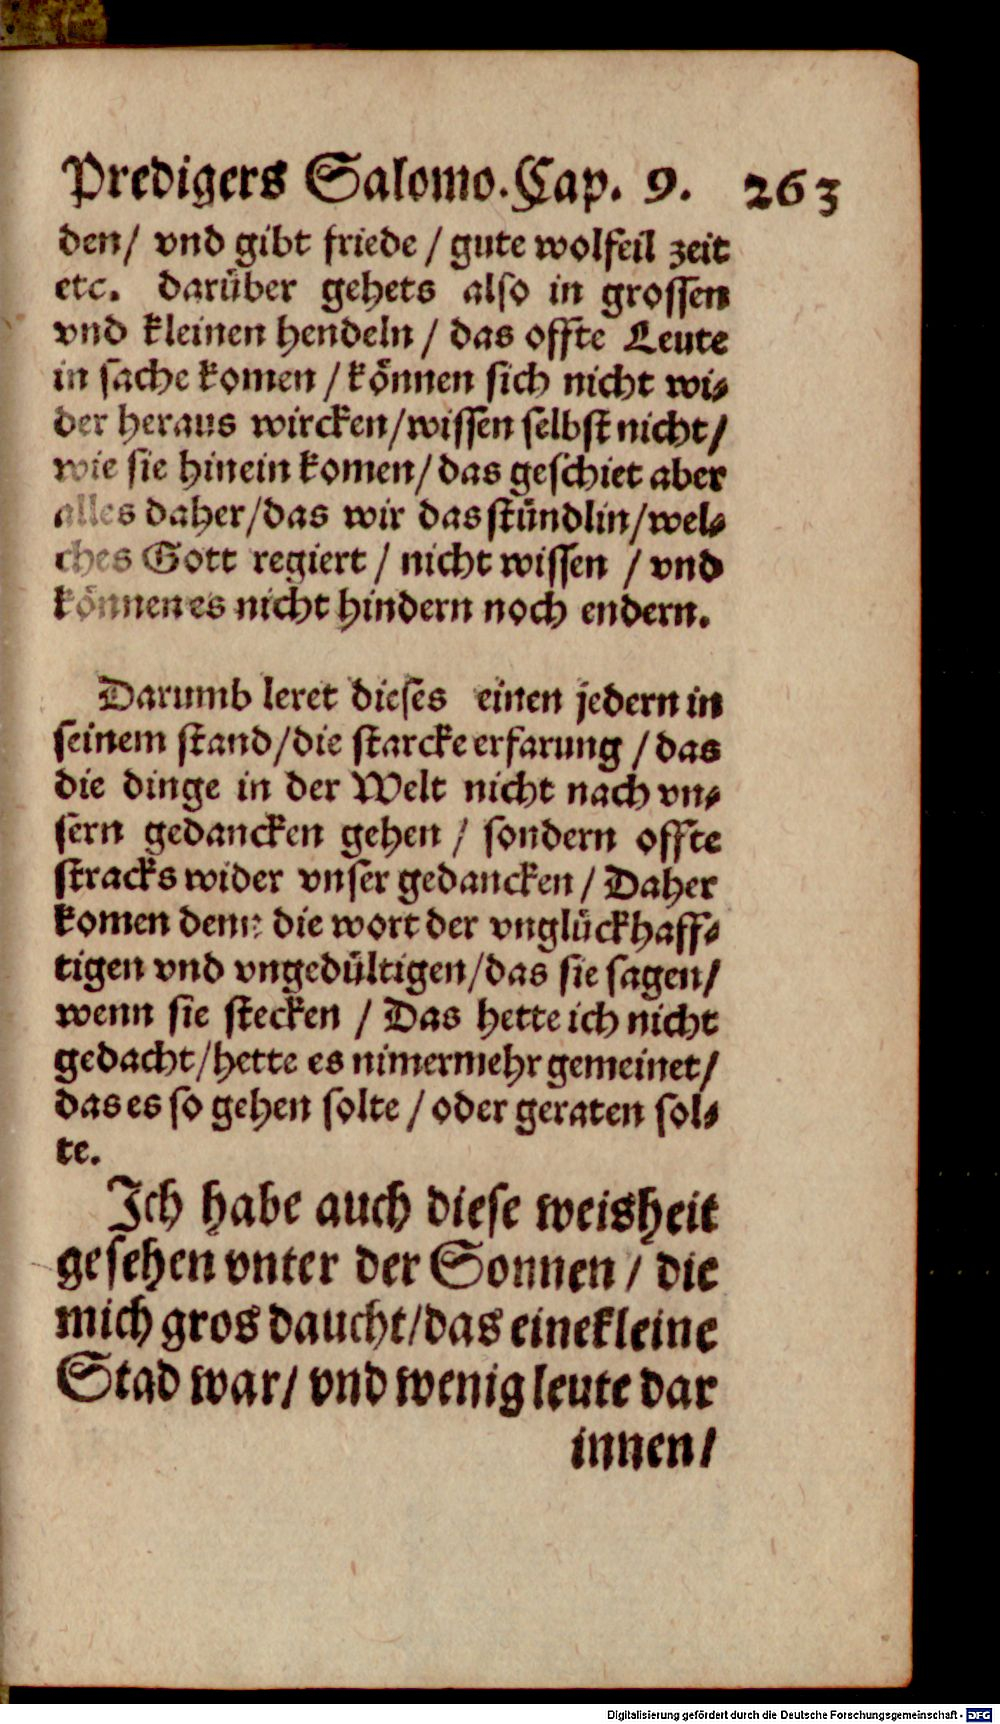 Predigers Salomo. Cap. 9. 263
den/ vnd gibt friede / gute wolfeil zeit
etc. darüber gehets also in grossen
vnd kleinen hendeln / das offte Leute
in sache komen / können sich nicht wi-
der heraus wircken/wissen selbst nicht/
wie sie hinein komen/das geschiet aber
alles daher/das wir das stündlin/wel-
ches Gott regiert / nicht wissen / vnd
können es nicht hindern noch endern.
Darumb leret dieses einen jedern in
seinem stand/die starcke erfarung / das
die dinge in der Welt nicht nach vn-
sern gedancken gehen / sondern offte
stracks wider vnser gedancken / Daher
komen denn die wort der vnglückhaff-
tigen vnd vngedültigen/das sie sagen/
wenn sie stecken / Das hette ich nicht
gedacht/hette es nimermehr gemeinet/
das es so gehen solte / oder geraten sol-
te.
Ich habe auch diese weisheit
gesehen vnter der Sonnen / die
mich gros daucht/das eine kleine
Stad war/ vnd wenig leute dar
innen/
Digitalisierung gefördert durch die Deutsche Forschungsgemeinschaft - DFG